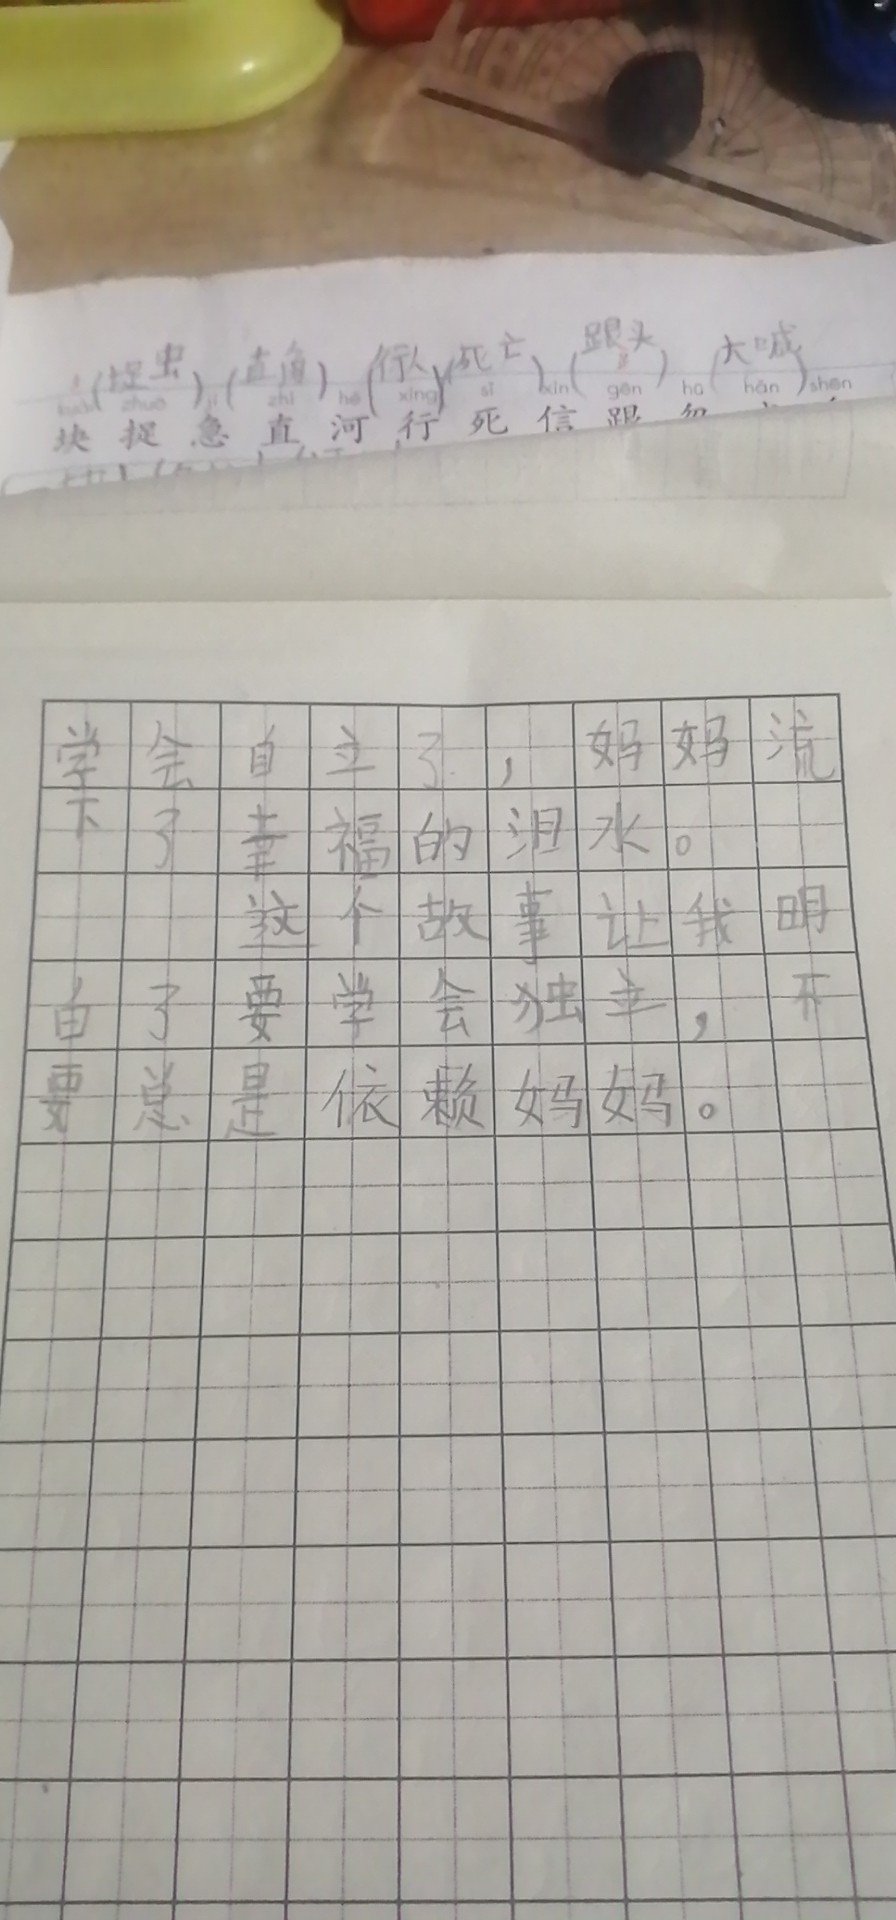 (捉虫) (直角) (行人) (死亡) (跟头) (大喊)
kuài zhuō jí zhí hé xíng sǐ xìn gēn hū hǎn shēn
块 捉 急 直 河 行 死 信 跟
学会自立了，妈妈流
下了幸福的泪水。
这个故事让我明
白了要学会独立，不
要总是依赖妈妈。